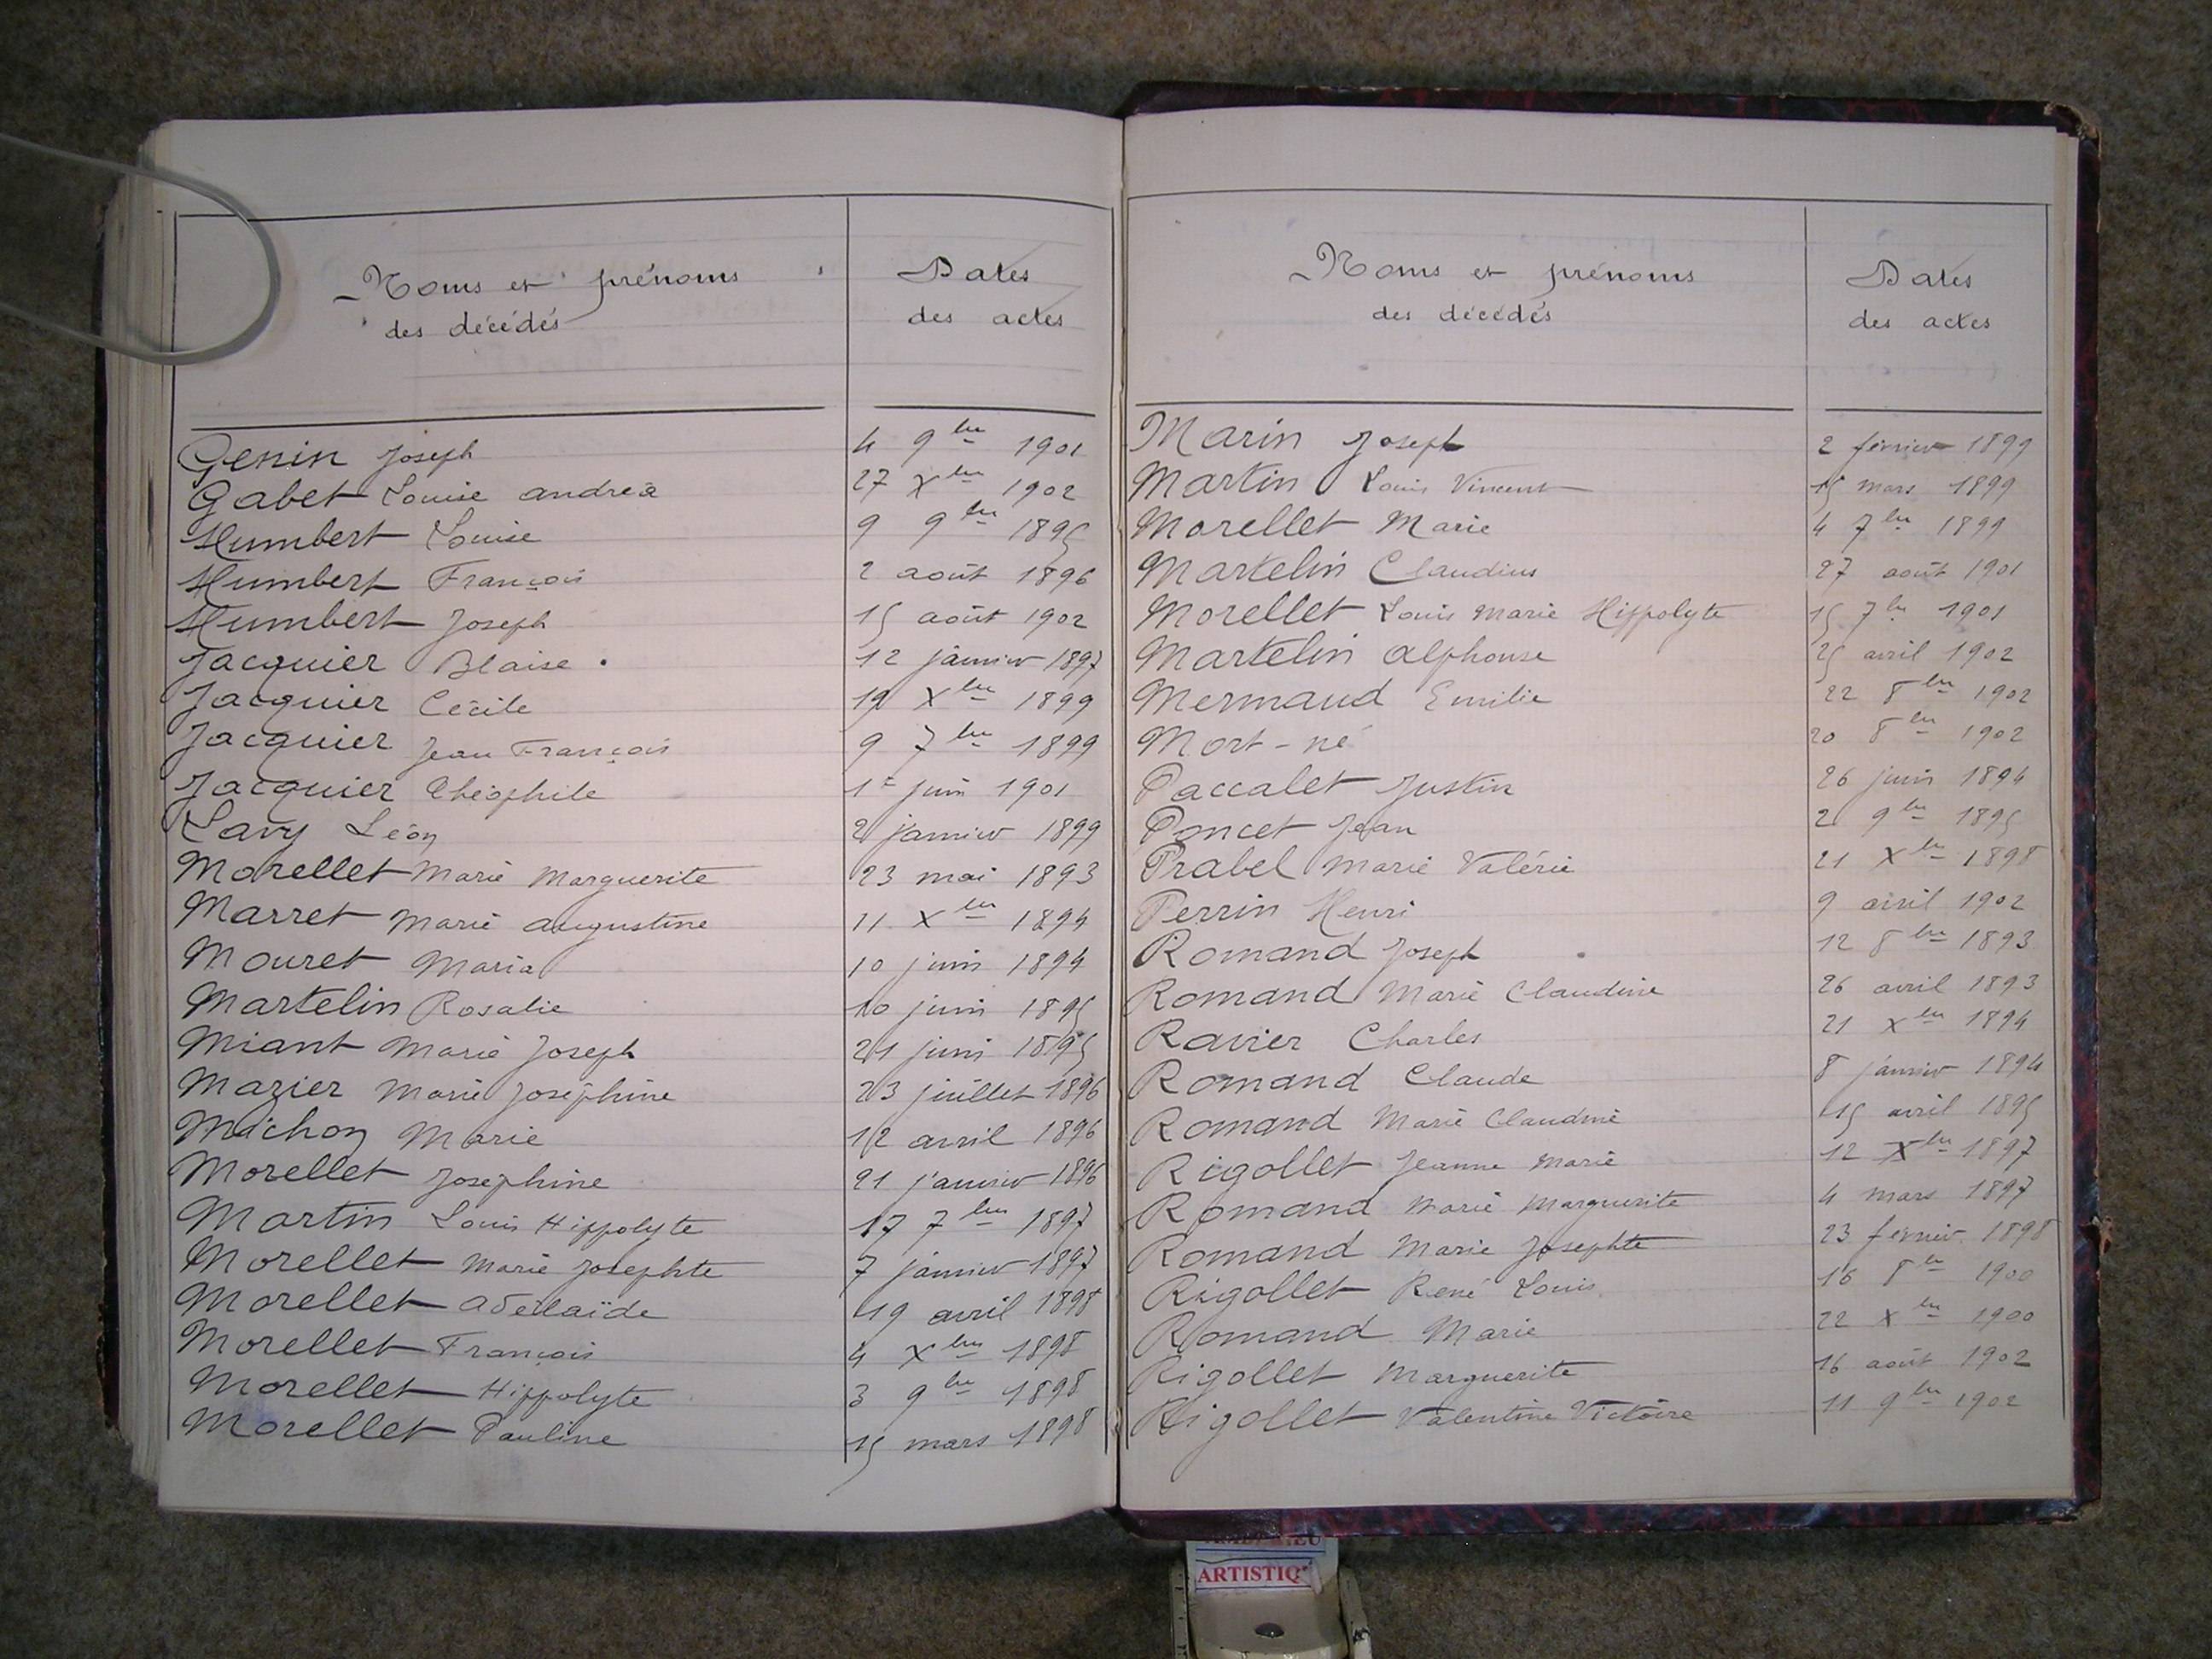 Noms et prénoms
des décédés
Dates
des actes
Genin Joseph 4 9bre 1901
Gabet Louise andréa 27 Xbre 1902
Humbert Louise 9 9bre 1895
Humbert François 2 août 1896
Humbert Joseph 15 août 1902
Jacquier Blaise 12 janvier 1897
Jacquier Cécile 19 Xbre 1899
Jacquier Jean François 9 7bre 1899
Jacquier Théophile 1er juin 1901
Lavy Léon 2 janvier 1899
Morellet Marie Marguerite 23 mai 1893
Marret Marie augustine 11 Xbre 1894
Mouret Maria 10 juin 1894
Martelin Rosalie 10 juin 1895
Miant Marie Joseph 21 juin 1895
Mazier Marie Joséphine 23 juillet 1896
Michon Marie 12 avril 1896
Morellet Joséphine 21 janvier 1896
Martin Louis Hippolyte 17 7bre 1897
Morellet Marie Josephte 7 janvier 1897
Morellet adélaïde 19 avril 1898
Morellet François 4 Xbre 1898
Morellet Hippolyte 3 9bre 1898
Morellet Pauline 15 mars 1898
Noms et prénoms
des décédés
Dates
des actes
Marin Joseph 2 février 1899
Martin Louis Vincent 15 mars 1899
Morellet Marie 4 7bre 1899
Martelin Claudius 27 août 1901
Morellet Louis Marie Hippolyte 15 7bre 1901
Martelin alphonse 25 avril 1902
Mermaud Emilie 22 8bre 1902
Mort-né 20 8bre 1902
Paccalet Justin 26 juin 1894
Poncet Jean 2 9bre 1895
Prabel Marie Valérie 21 Xbre 1898
Perrin Henri 9 avril 1902
Romand Joseph 12 8bre 1893
Romand Marie Claudine 26 avril 1893
Ravier Charles 21 Xbre 1894
Romand Claude 8 janvier 1894
Romand Marie Claudine 15 avril 1895
Rigollet Jeanne Marie 12 Xbre 1897
Romand Marie Marguerite 4 mars 1897
Romand Marie Josephte 23 février 1898
Rigollet René Louis 16 8bre 1900
Romand Marie 22 Xbre 1900
Rigollet Marguerite 16 août 1902
Rigollet Valentine Victoire 11 9bre 1902
ARTISTIQ